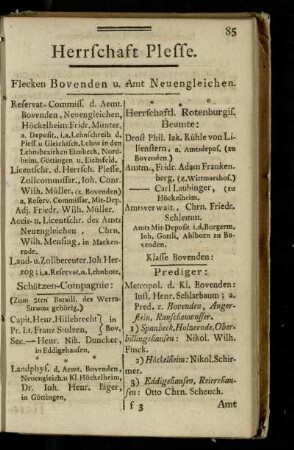 85
Herrschaft Plesse.
Flecken Bovenden u. Amt Neuengleichen.
Reservat-Commiss. d. Aemt.
Bovenden, Neuengleichen,
Höckelheim: Fridr. Münter,
a. Deposit., i. a. Lehnschreib. d.
Pless. u. Gleichisch. Lehne in den
Lehnbezirken Einbeck, Nord-
heim, Göttingen u. Eichsfeld.
Licentschr. d. Herrsch. Plesse,
Zollcommissär, Joh. Conr.
Wilh. Müller, (z. Bovenden)
a. Reserv. Commissär, Mit-Dep.
Adj. Friedr. Wilh. Müller.
Accis- u. Licentschr. des Amts
Neuengleichen, Chrn.
Wilh. Mensing, in Macken-
rode.
Land- u. Zollbereuter, Joh. Her-
zog; i. a. Reservat. u. Lehnbote.
Schützen-Compagnie:
(Zum 2ten Bataill. des Werra-
Stroms gehörig.)
Capit. Henr. Hillebrecht } in
Pr. Lt. Franz Stolzen, } Bov.
Sec.— Henr. Nik. Duncker,
in Eddigehausen,
* *
*
Landphys. d. Aemt. Bovenden,
Neuengleich. u. Kl. Höckelheim,
Dr. Joh. Henr. Jäger,
in Göttingen.
* *
*
Herrschaftl. Rotenburgis.
Beamte:
Drost Phil. Jak. Rühle von Li-
lienstern, a. Amtsdepos. (zu
Bovenden.)
Amtm., Fridr. Adam Franken-
berg, (z. Wittmarshof.)
— Carl Laubinger, (zu
Höckelheim.
Amtsverwalt. Chrn. Friedr.
Schlemm.
Amts Mit-Deposit. i. d. Burgerm.
Joh. Gottl. Ahlborn zu Bo-
venden.
Klasse Bovenden:
Prediger:
Metropol. d. Kl. Bovenden:
Iust. Henr. Schlarbaum; a.
Pred. z. Bovenden, Anger-
stein, Rauschenwasser.
1) Spanbeck, Holzerode, Ober-
billingshausen: Nikol. Wilh.
Funck.
2) Höckelheim: Nikol. Schir-
mer.
3) Eddigehausen, Reiershau-
sen: Otto Chrn. Scheuch.
f 3
Amt